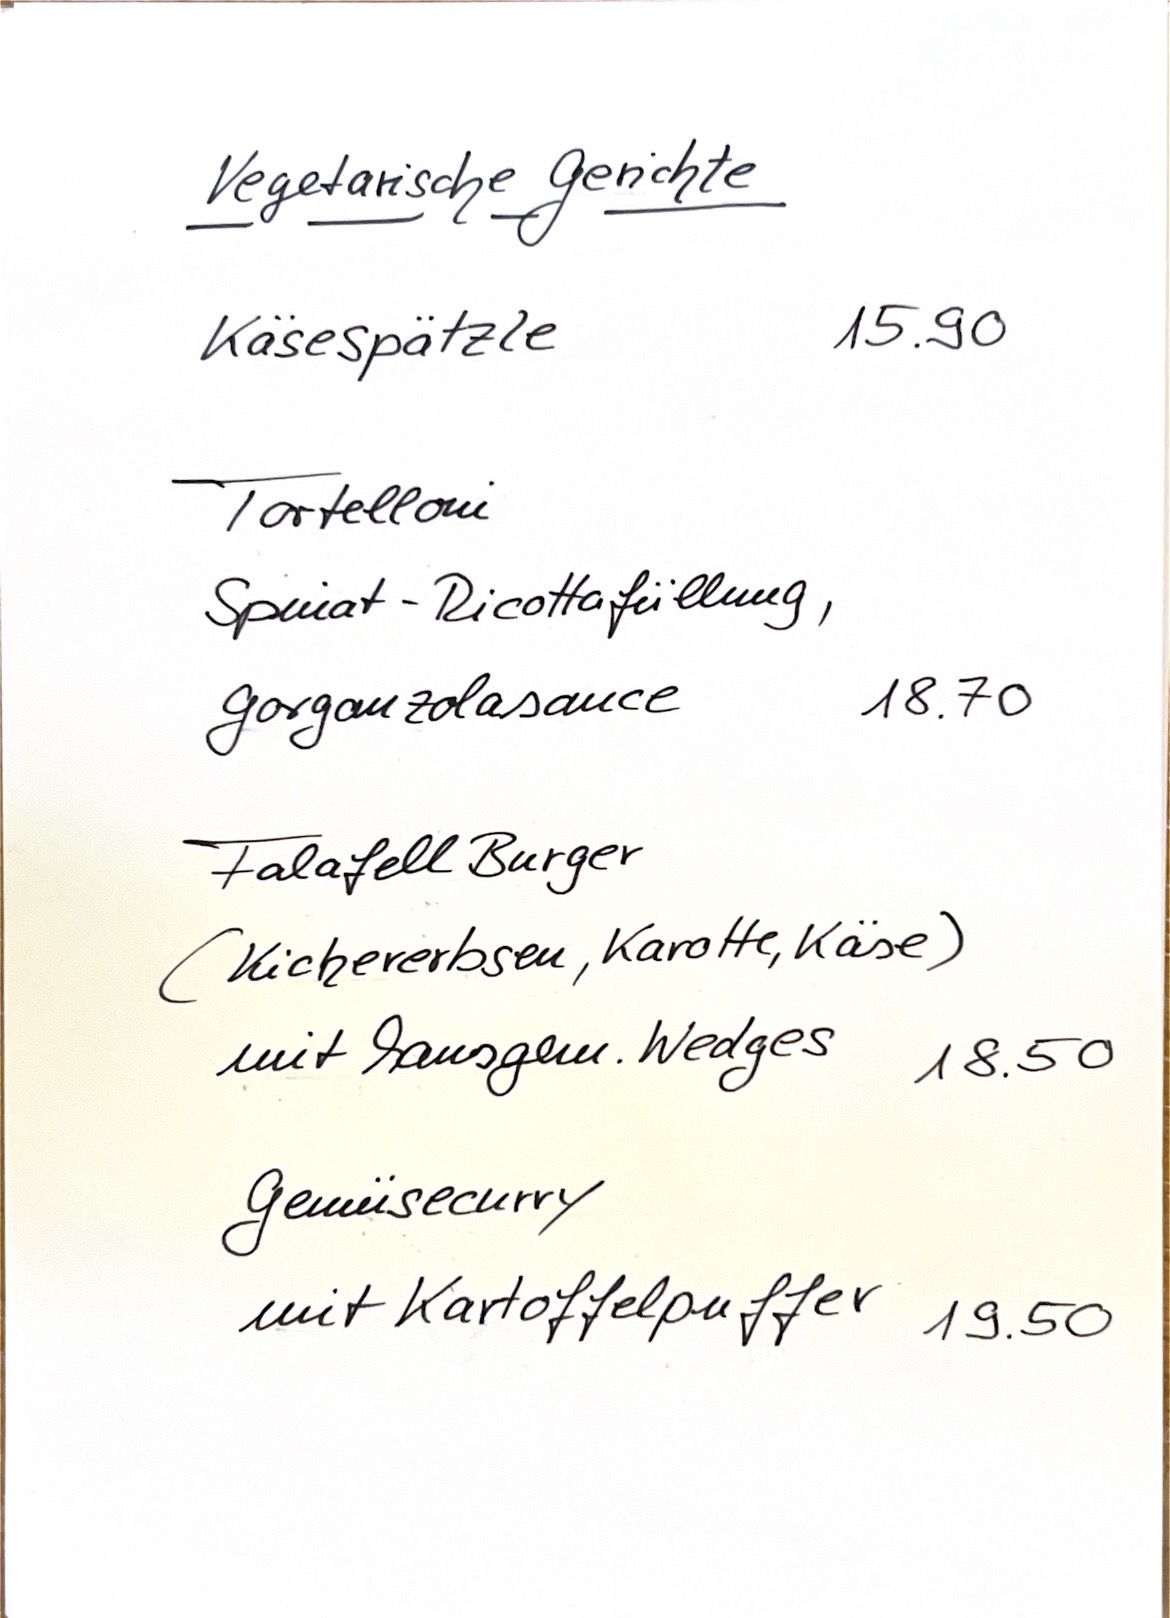 Vegetarische Gerichte
Käsespätzle 15.90
Tortelloni
Spinat-Ricottafüllung,
Gorganzolasauce 18.70
Falafell Burger
(Kichererbsen, Karotte, Käse)
mit hausgem. Wedges 18.50
Gemüsecurry
mit Kartoffelpuffer 19.50